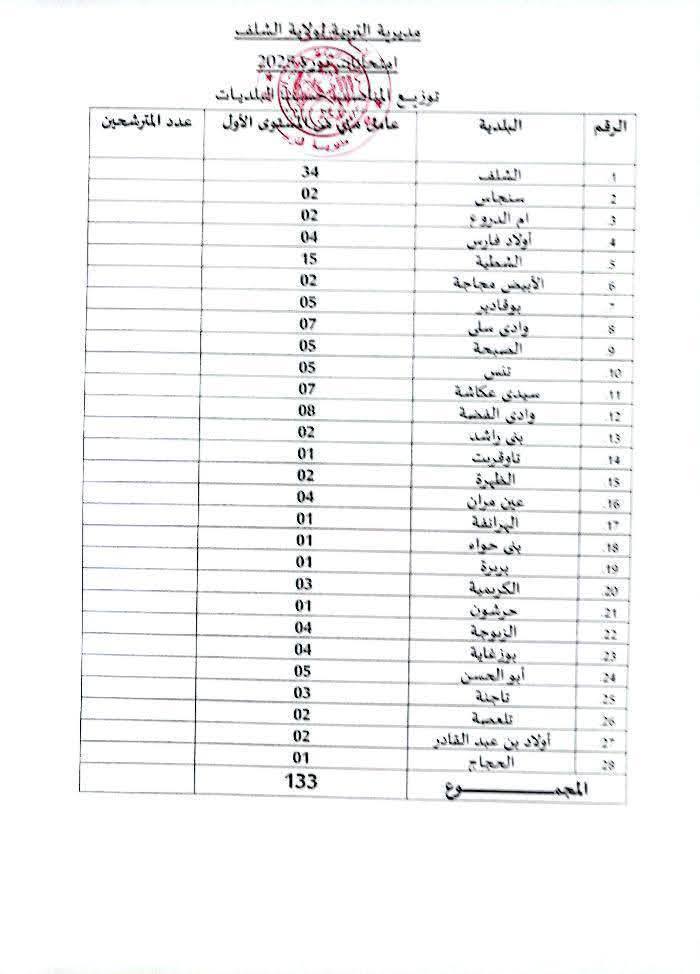 مديرية التربية لولاية الشلف
امتحانات دورة 2025
توزيع المناصب حسب البلديات
الرقم البلدية عامل مهني من المستوى الأول عدد المترشحين
1 الشلف 34
2 سنجاس 02
3 ام الدروع 02
4 أولاد فارس 04
5 الشطية 15
6 الأبيض مجاجة 02
7 بوقادير 05
8 وادي سلي 07
9 الصبحة 05
10. تنس 05
11. سيدي عكاشة 07
12. وادي الفضة 08
13 بني راشد 02
14 تاوقريت 01
15. الظهرة 02
16. عين مران 04
17. الهرانفة 01
18. بني حواء 01
19. بريرة 01
20. الكريمية 03
21. حرشون 01
22 الزبوجة 04
23 بوزغاية 04
24 أبو الحسن 05
25 تاجنة 03
26 تلعصة 02
27 أولاد بن عبد القادر 02
28 الحجاج 01
المجمـــــــوع 133